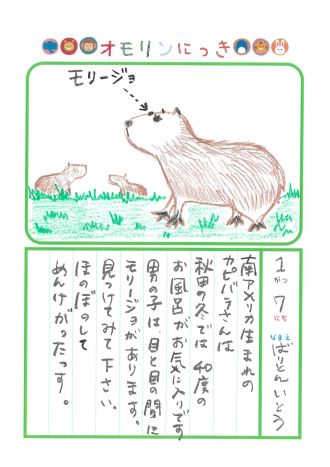 オモリンにっき
モリージョ
1がつ7にち なまえ ばりとんいとう
南アメリカ生まれの
カピバラさんは
秋田の冬では 40度の
お風呂がお気に入りです
男の子は、目と目の間に
モリージョがあります。
見つけてみて下さい。
ほのぼのして
めんけがったっす。